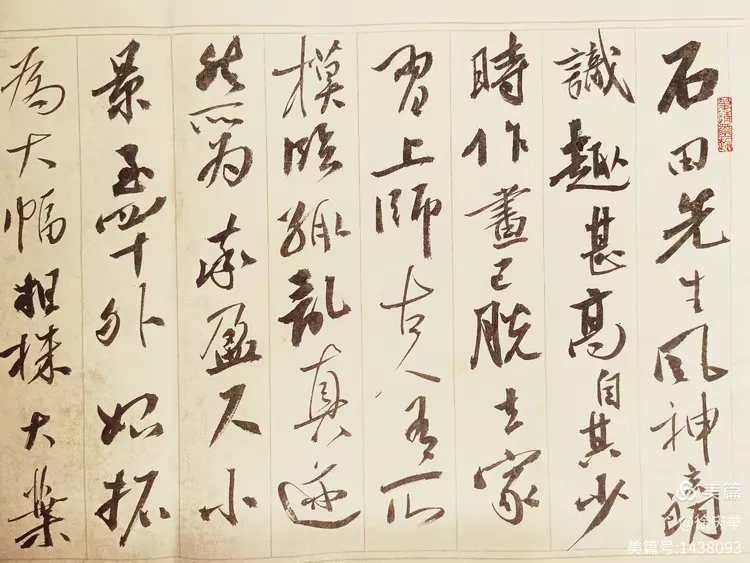 石田先生風神玄朗
識趣甚高自其少
時作畫已脫去家
習上師古人有所
模臨輒亂真迹
然所為率盈尺小
景至四十外始拓
為大幅粗株大葉
美篇
@徐庆举
美篇号:1438093